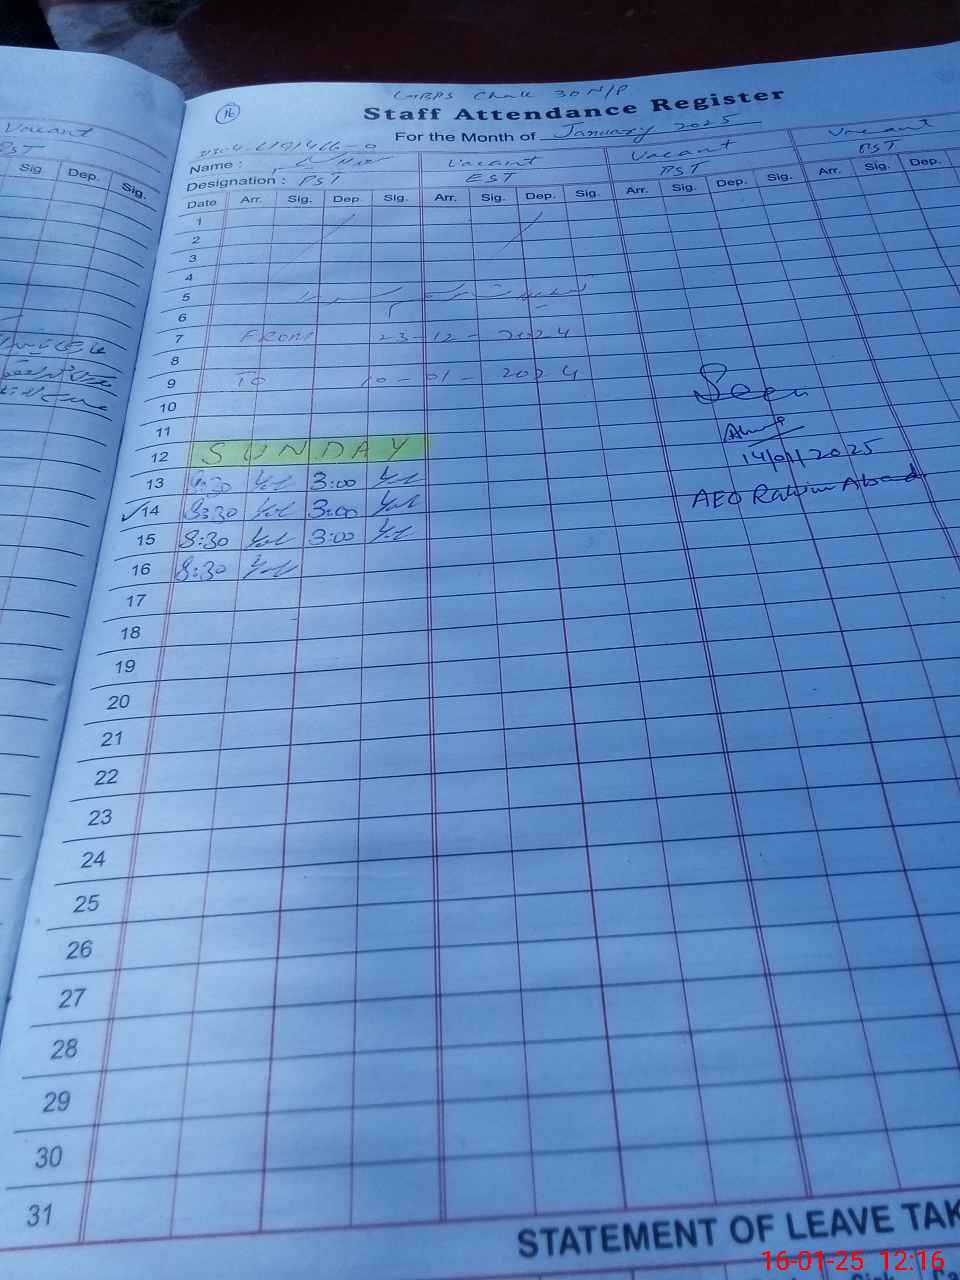 16
GBPS Chak 30 N/P
Staff Attendance Register
For the Month of January 2025
Vacant
PST
Sig. Dep. Sig.
Name : Vacant Vacant Vacant
Designation : PST EST PST PST
Date Arr. Sig. Dep. Sig. Arr. Sig. Dep. Sig. Arr. Sig. Dep. Sig. Arr. Sig. Dep.
1
2
3
4
5
6
7 FROM 23-12-2024
8
9 TO 10-01-2024
10
Seen
11
12 SUNDAY
14/01/2025
13 8:30 3:00
AEO Rahim Abad
14 8:30 3:00
15 8:30 3:00
16 8:30
17
18
19
20
21
22
23
24
25
26
27
28
29
30
31
STATEMENT OF LEAVE TAK
16-01-25 12:16